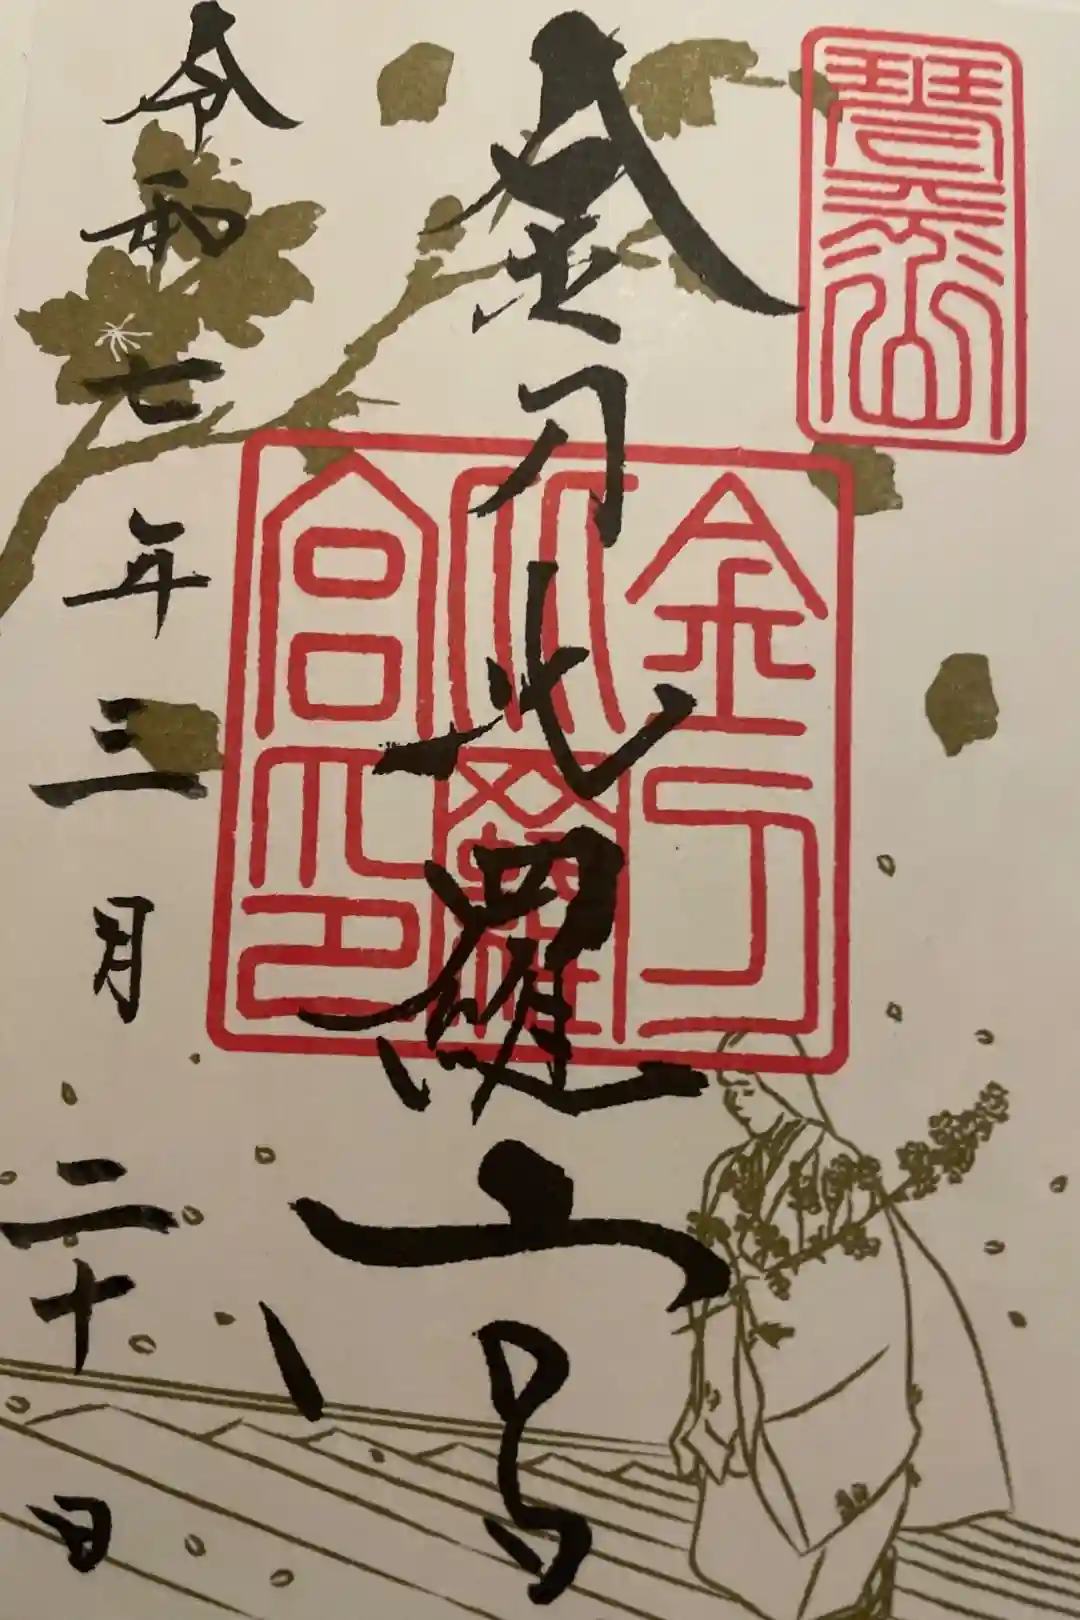 琴平山
金刀比羅宮
金刀
比羅
宮印
令和七年三月二十日